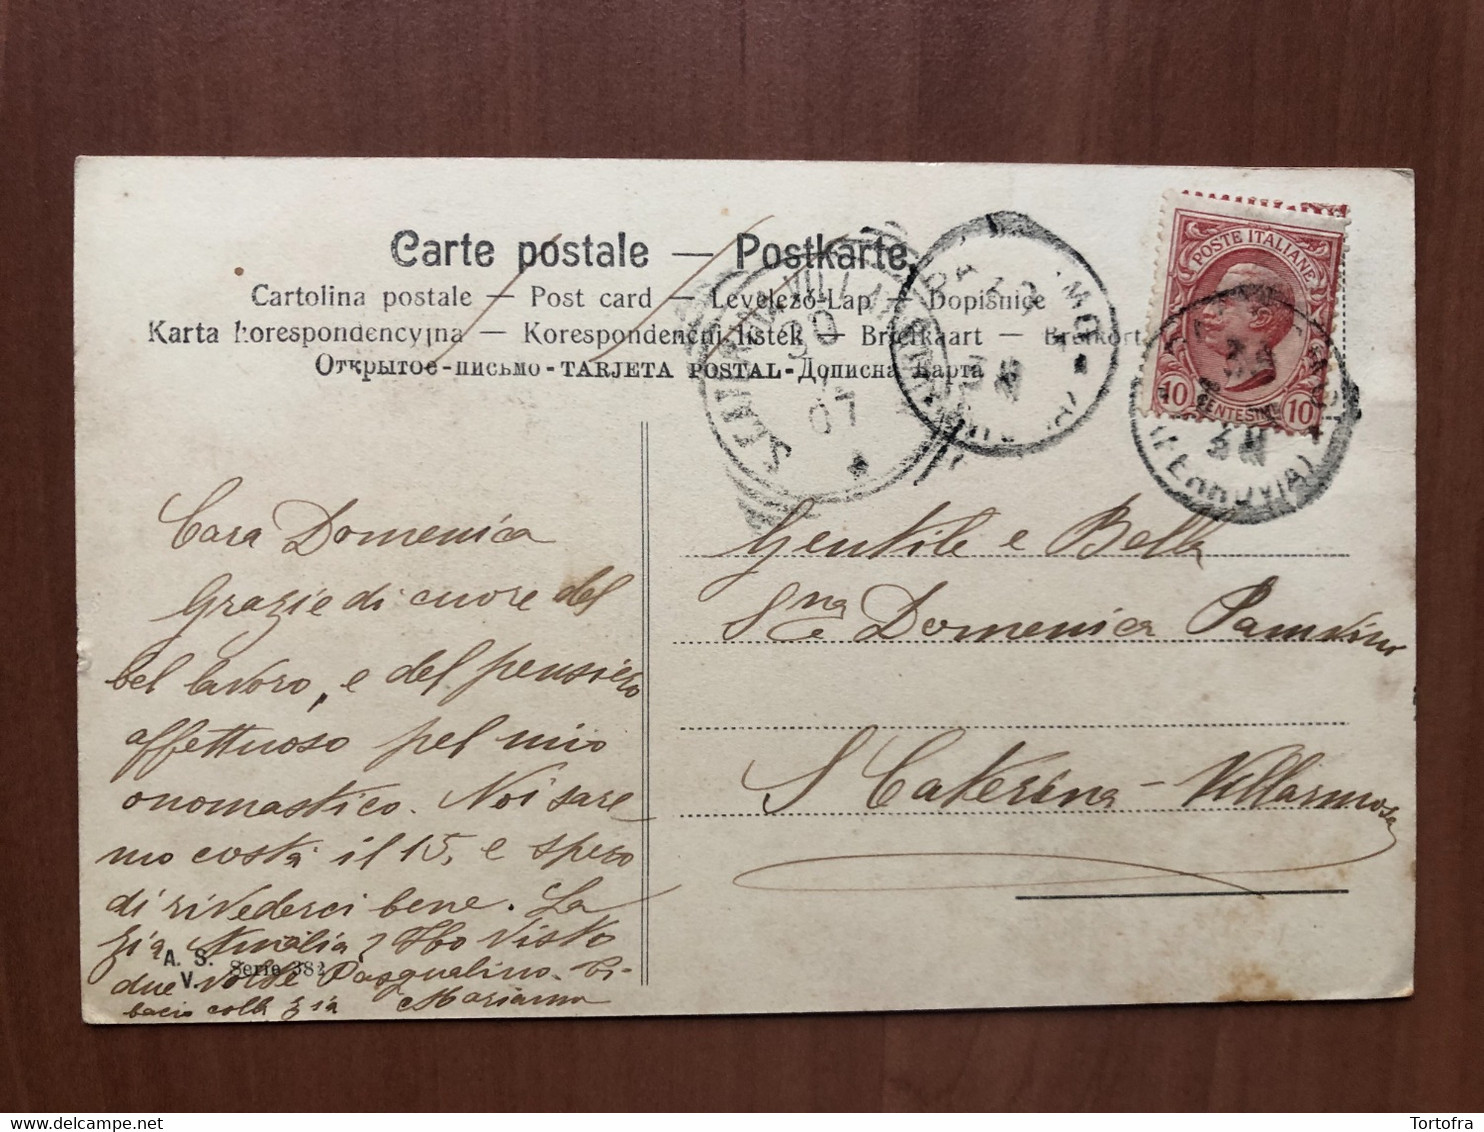 Carte postale — Postkarte
Cartolina postale — Post card — Levelező-Lap — Dopisnice
Karta korespondencyjna — Korespondenčni listek — Briefkaart — Brefkort
Открытое-письмо-TARJETA POSTAL-Дописна Карта
POSTE ITALIANE
10 CENTESIMI 10
30
07
(FERROVIA)
Cara Domenica
Grazie di cuore del
bel lavoro, e del pensiero
affettuoso pel mio
onomastico. Noi sare
mo costà il 15, e spero
di rivederci bene. La
zia Ho visto
due volte Pasqualino. Ti
bacio colla zia Marianna
A. S.
V.
Serie 382
Gentile e Bella
Sna Domenica
S Caterina - Villarmosa
Tortofra